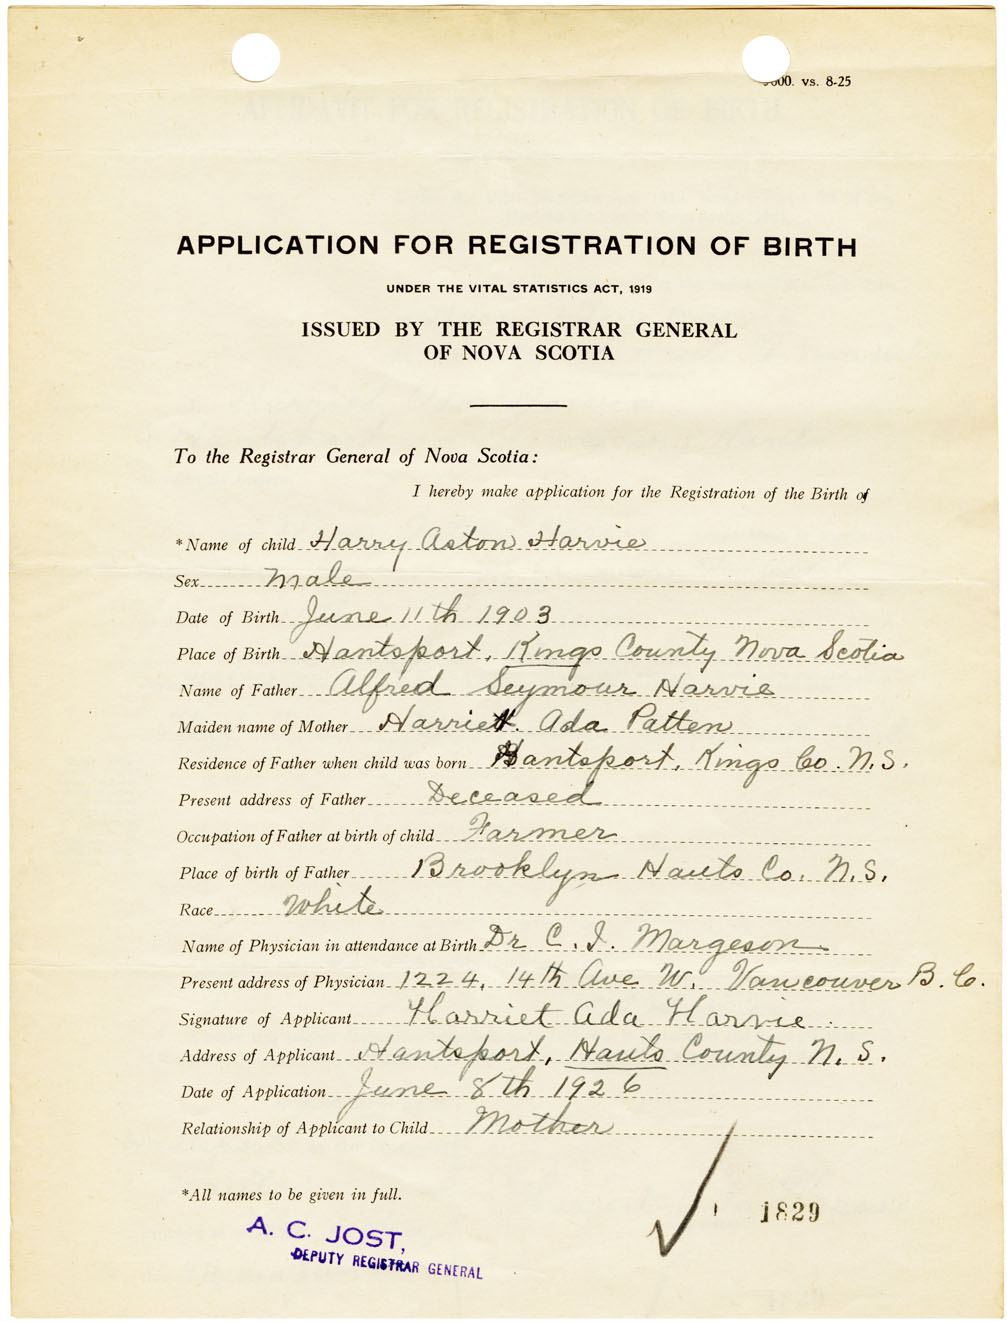 000. vs. 8-25
APPLICATION FOR REGISTRATION OF BIRTH
UNDER THE VITAL STATISTICS ACT, 1919
ISSUED BY THE REGISTRAR GENERAL
OF NOVA SCOTIA
To the Registrar General of Nova Scotia:
I hereby make application for the Registration of the Birth of
*Name of child Harry Aston Harvie
Sex Male
Date of Birth June 11th 1903
Place of Birth Hantsport, Kings County Nova Scotia
Name of Father Alfred Seymour Harvie
Maiden name of Mother Harriet Ada Patten
Residence of Father when child was born Hantsport, Kings Co. N.S.
Present address of Father Deceased
Occupation of Father at birth of child Farmer
Place of birth of Father Brooklyn Hants Co. N.S.
Race White
Name of Physician in attendance at Birth Dr C. I. Margeson
Present address of Physician 1224, 14th Ave W. Vancouver B.C.
Signature of Applicant Harriet Ada Harvie
Address of Applicant Hantsport, Hants County N.S.
Date of Application June 8th 1926
Relationship of Applicant to Child Mother
*All names to be given in full.
1829
A. C. JOST,
DEPUTY REGISTRAR GENERAL